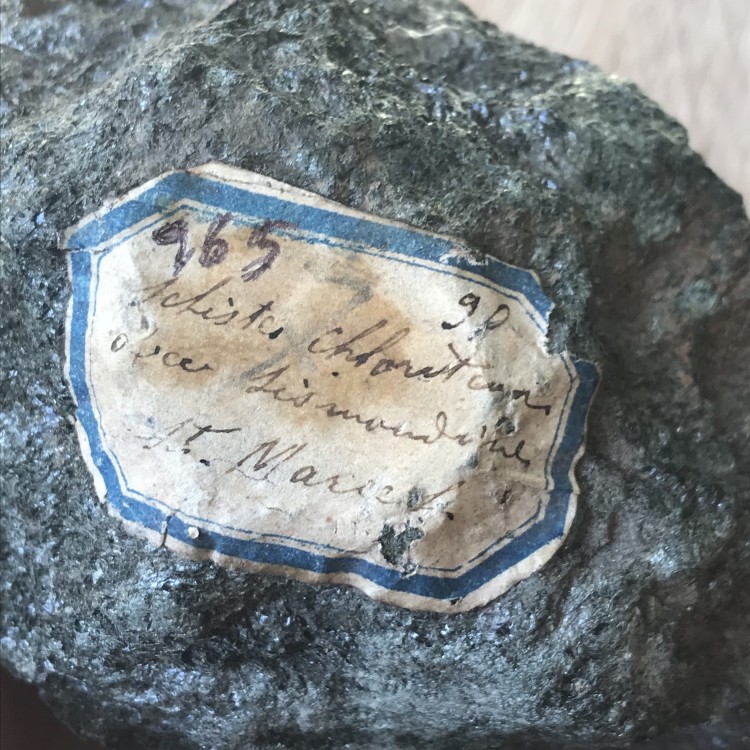 965
98
Schistes chloriteux
avec Sismondine
St. Marcel.